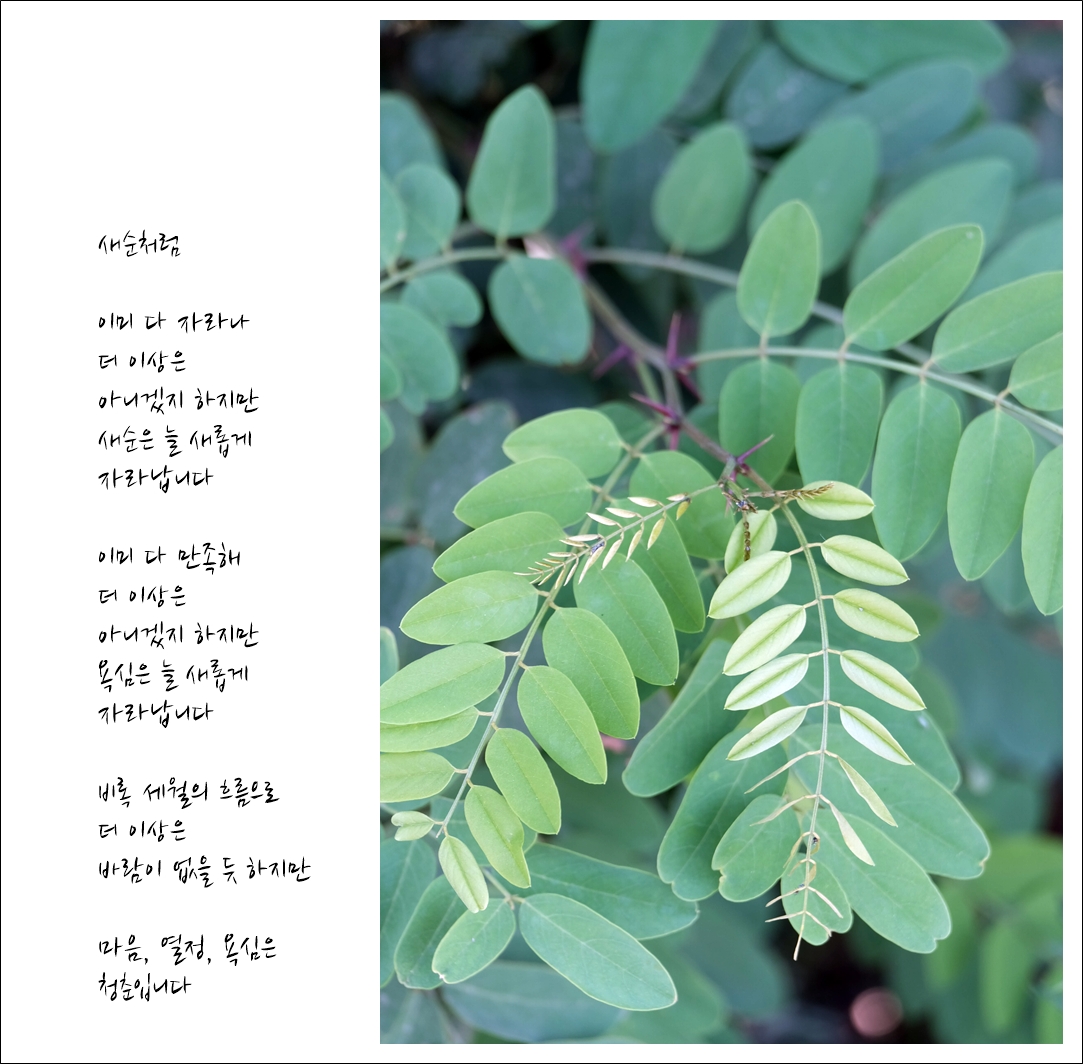 새순처럼
이미 다 자라나
더 이상은
아니겠지 하지만
새순은 늘 새롭게
자라납니다
이미 다 만족해
더 이상은
아니겠지 하지만
욕심은 늘 새롭게
자라납니다
비록 세월의 흐름으로
더 이상은
바람이 없을 듯 하지만
마음, 열정, 욕심은
청춘입니다